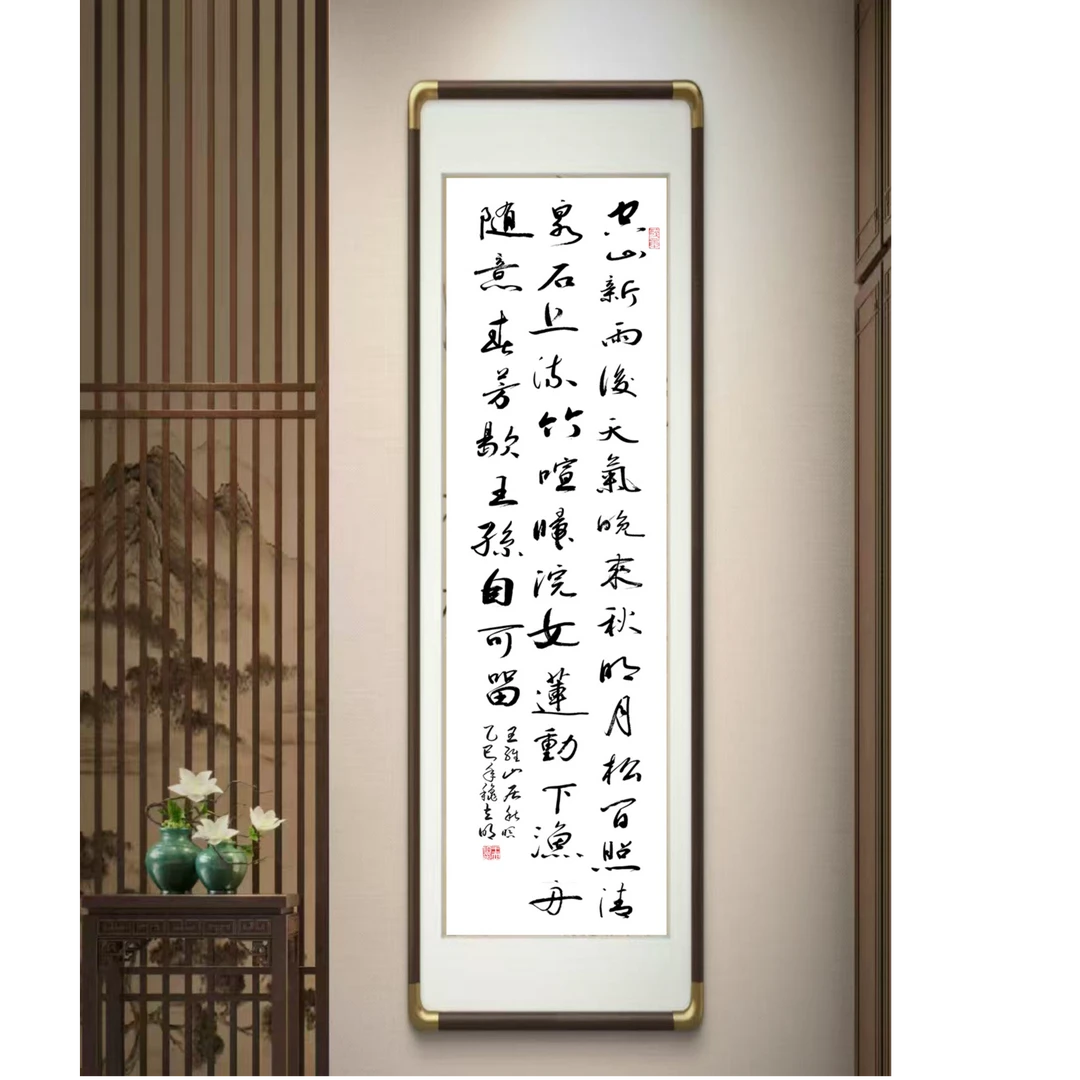 空山新雨後天氣晚來秋明月松間照清
泉石上流竹喧歸浣女蓮動下漁舟
隨意春芳歇王孫自可留
王維山居秋暝
乙巳年 立明